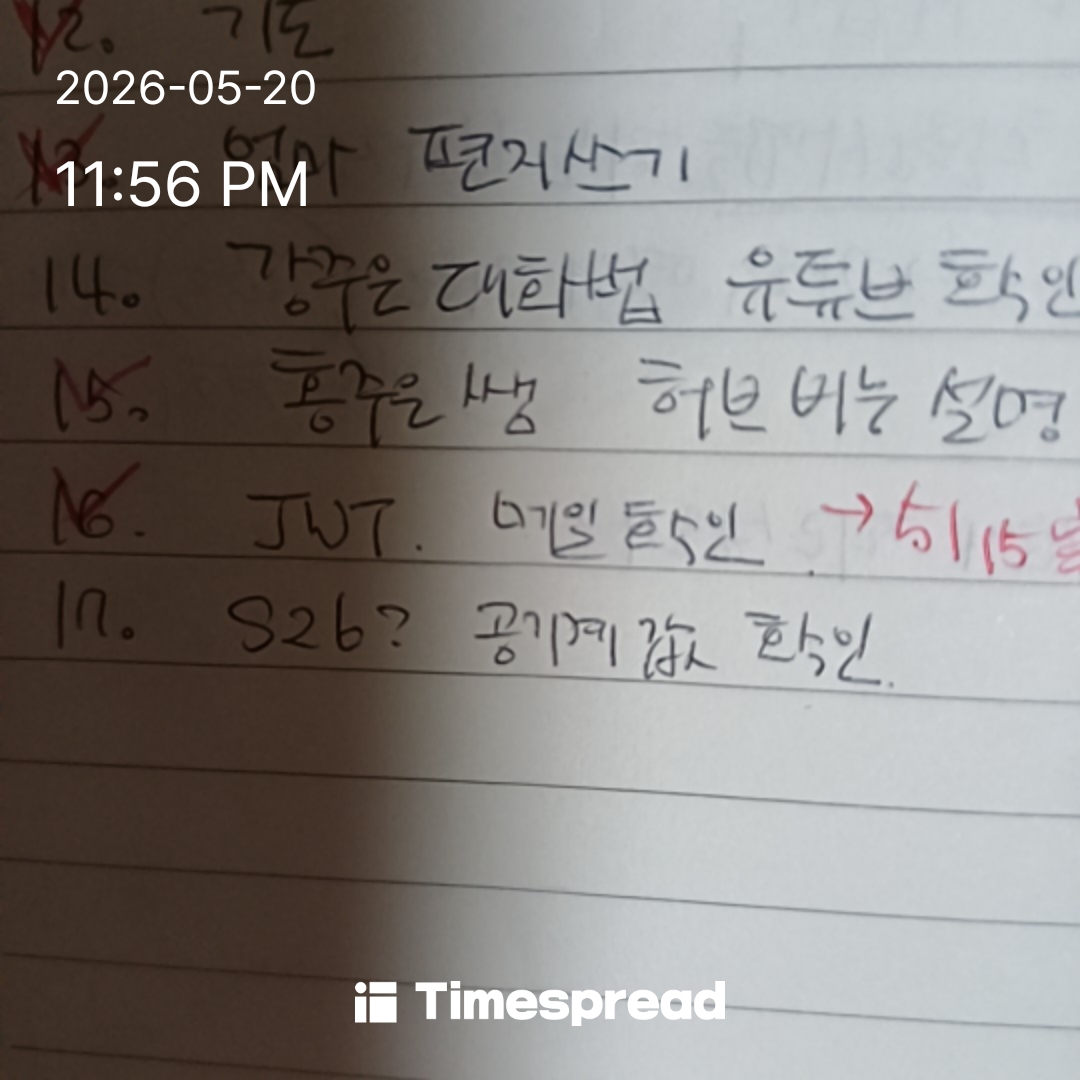 12. 기도
2026-05-20
13. 엄마 편지쓰기
11:56 PM
14. 강주은 대화법 유튜브 확인
15. 홍주은 쌤 허브 비누 설명
16. JWT. 메일 확인 → 5/15일
17. S26? 공기계 값 확인.
Timespread